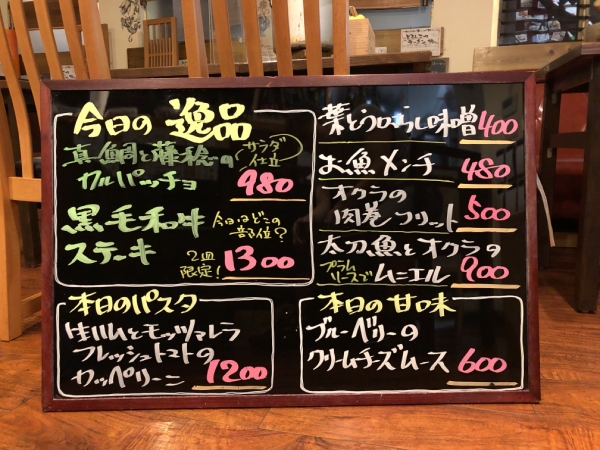 今日の 逸品
真鯛と藤稔の サラダ仕立
カルパッチョ 980
黒毛和牛 今日はどこの部位?
ステーキ 2皿限定! 1300
葉とうがらし味噌 400
お魚メンチ 480
オクラの
肉巻フリット 500
太刀魚とオクラの
プラムソースで ムニエル 900
本日のパスタ
生ハムとモッツァレラ
フレッシュトマトの
カッペリーニ 1200
本日の甘味
ブルーベリーの
クリームチーズムース 600